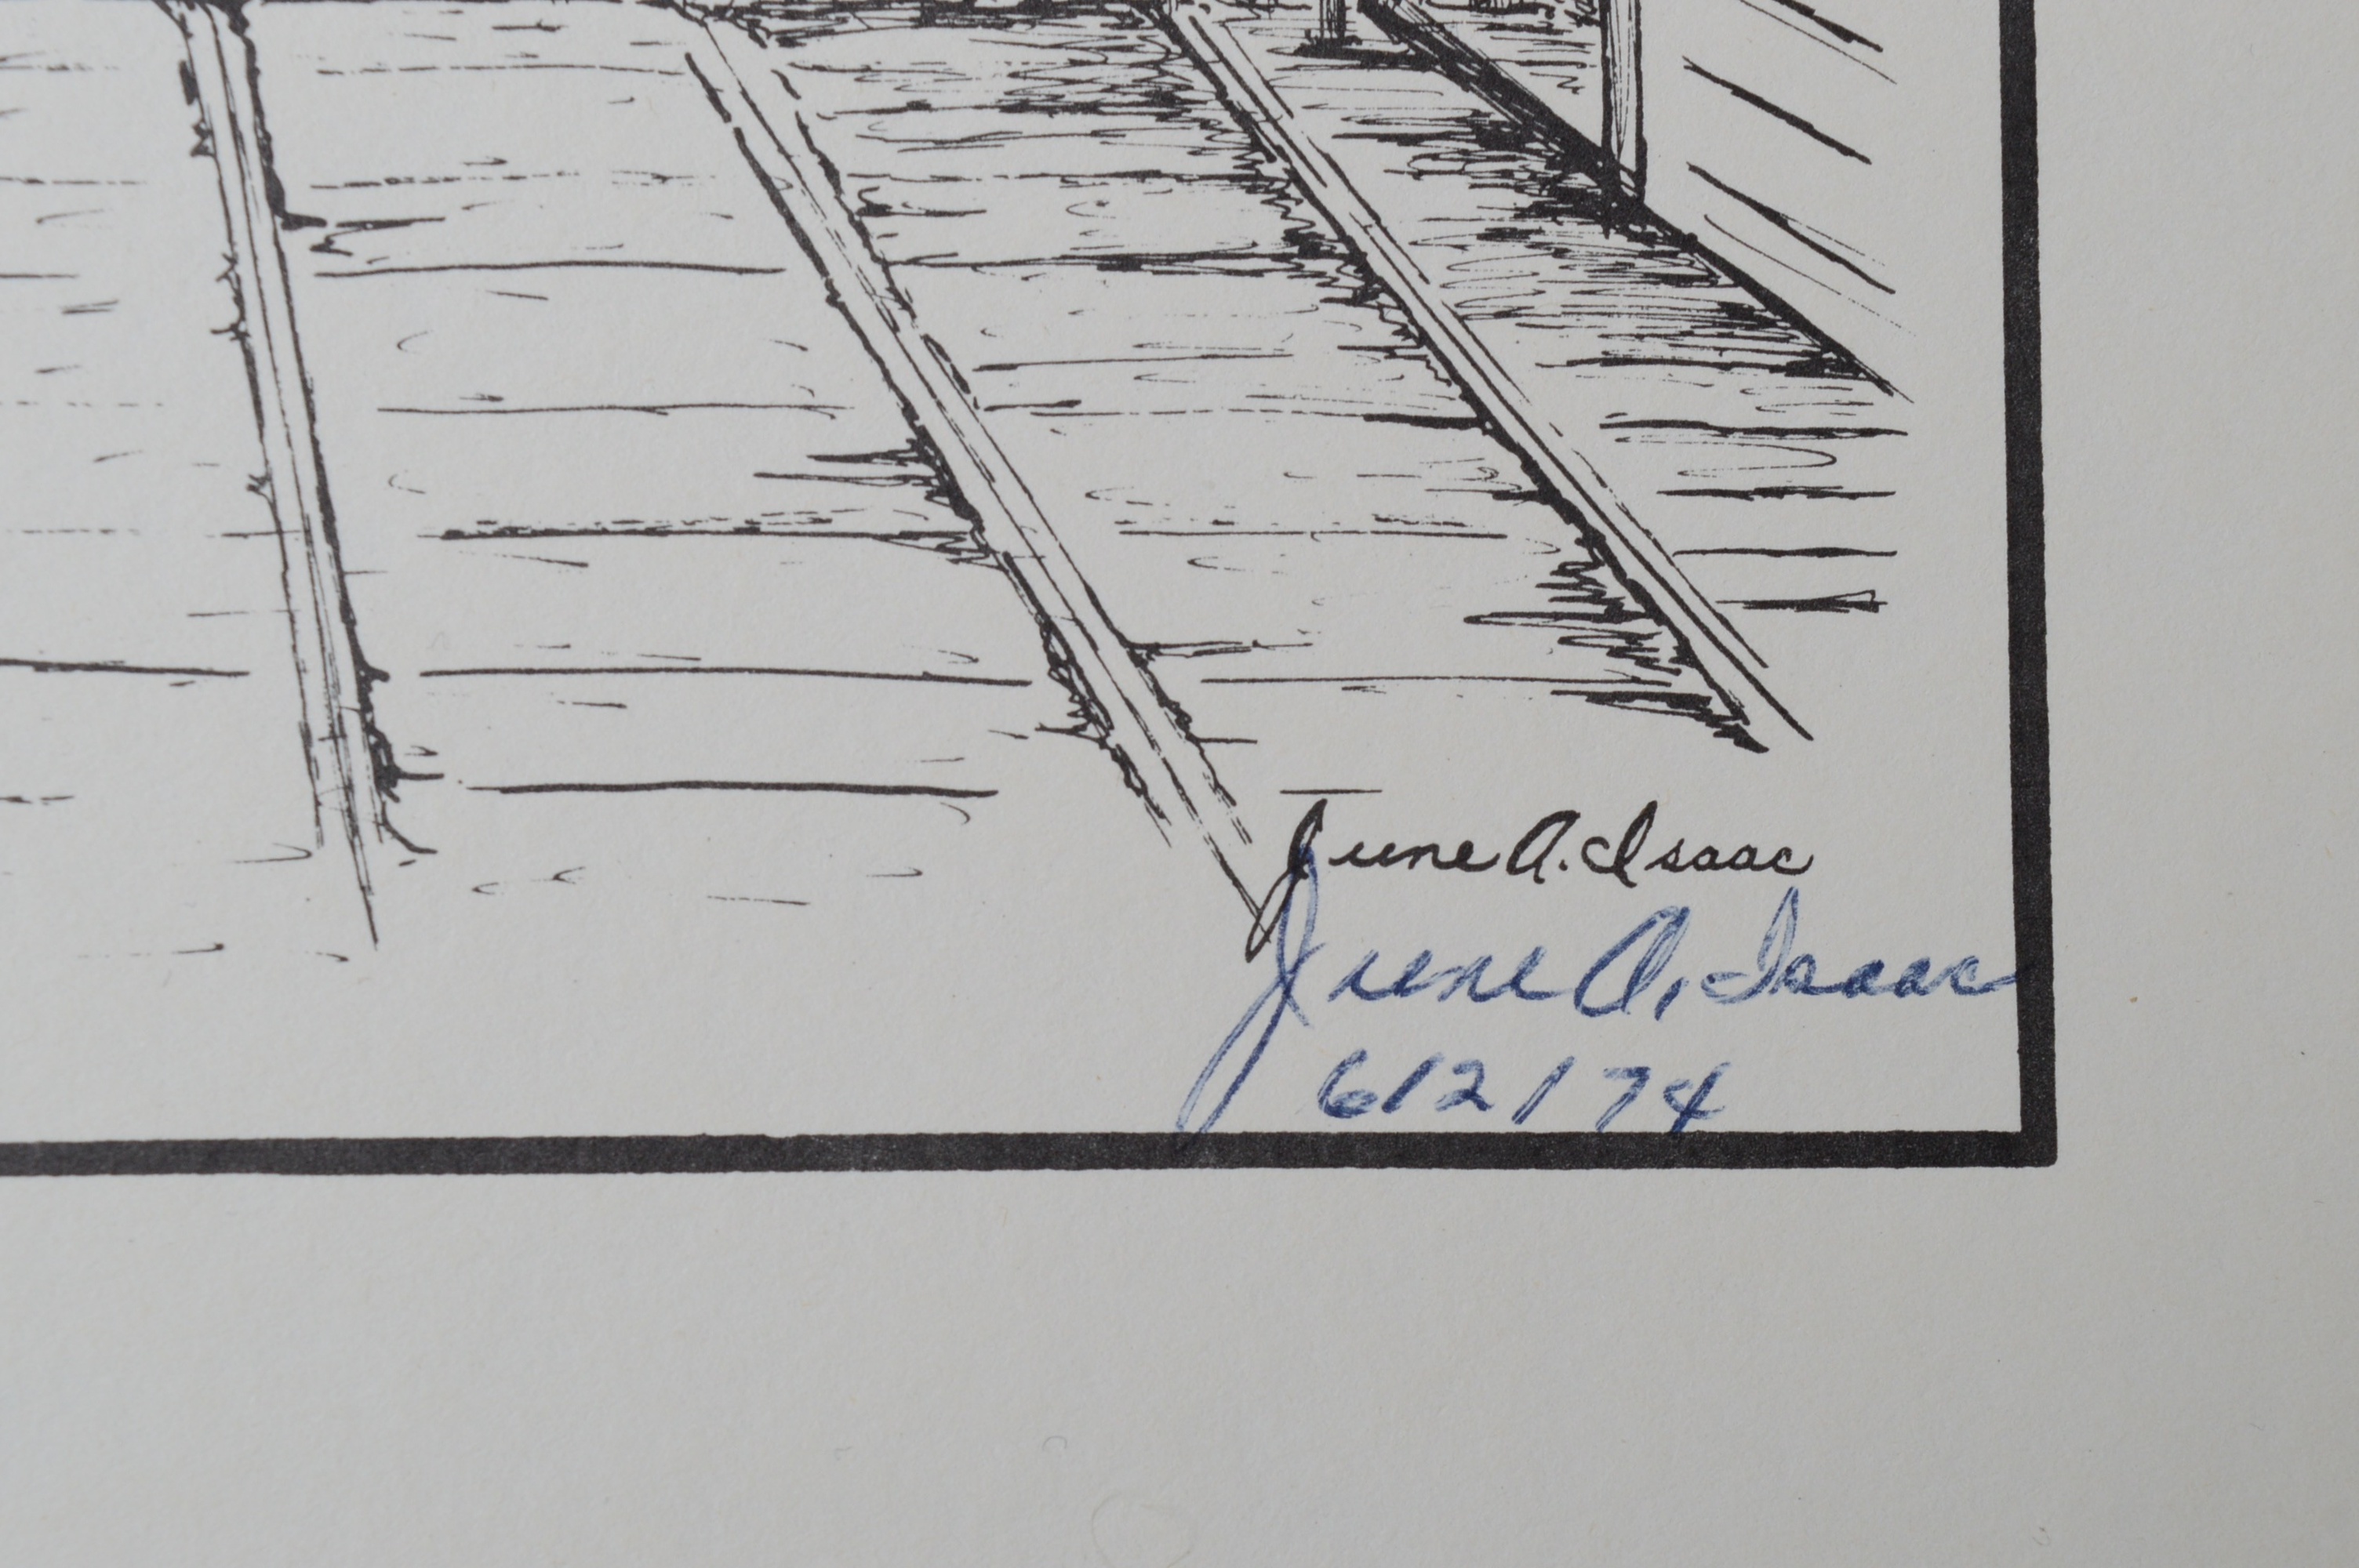 June A. Isaac
June A. Isaac
6/2/74